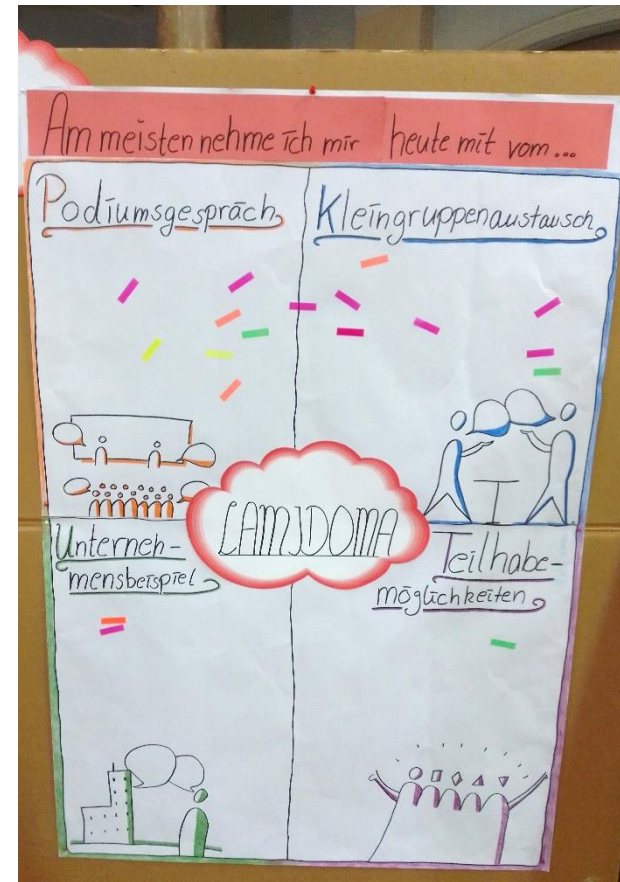 Am meisten nehme ich mir heute mit vom...
Podiumsgespräch
Kleingruppenaustausch
LAMIDOMA
Unterneh-
mensbeispiel
Teilhabe-
möglichkeiten